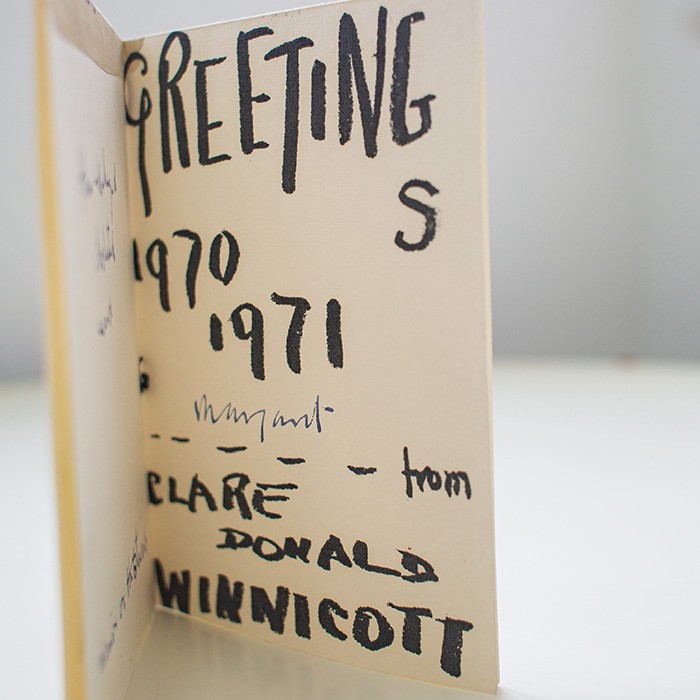 GREETING
S
1970
1971
Margaret
- - - - - from
CLARE
DONALD
WINNICOTT